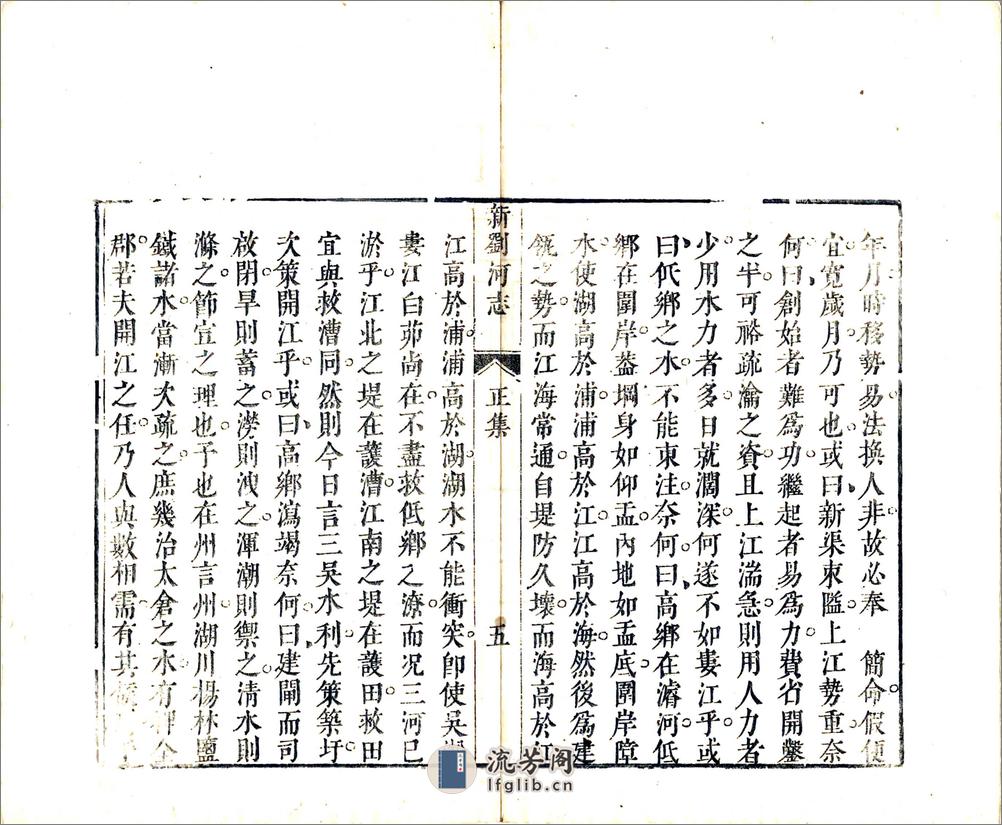 年月時移勢易法換人非故必奉 簡命假便
宜寬歲月乃可也或曰新渠東隘上江勢重奈
何曰創始者難爲功繼起者易爲力費省開鑿
之半可裕疏瀹之資且上江湍急則用人力者
少用水力者多日就濶深何遂不如婁江乎或
曰低鄉之水不能東注奈何曰高鄉在濬河低
鄉在圍岸葢堈身如仰盂內地如盂底圍岸障
水使湖高於浦浦高於江江高於海然後爲建
瓴之勢而江海常通自堤防久壞而海高於江
新劉河志 正集 五
江高於浦浦高於湖湖水不能衝突卽使吳
婁江白茆尚在不盡救低鄉之潦而况三河已
淤乎江北之堤在護漕江南之堤在護田救田
宜與救漕同然則今日言三吳水利先策築圩
次策開江乎或曰高鄉瀉竭奈何曰建閘而司
啟閉旱則蓄之澇則洩之渾潮則禦之淸水則
滌之節宣之理也予也在州言州湖川楊林鹽
鐵諸水當漸次疏之庶幾治太倉之水有裨全
郡若夫開江之任乃人與數相需有其
流芳阁
lfglib.cn